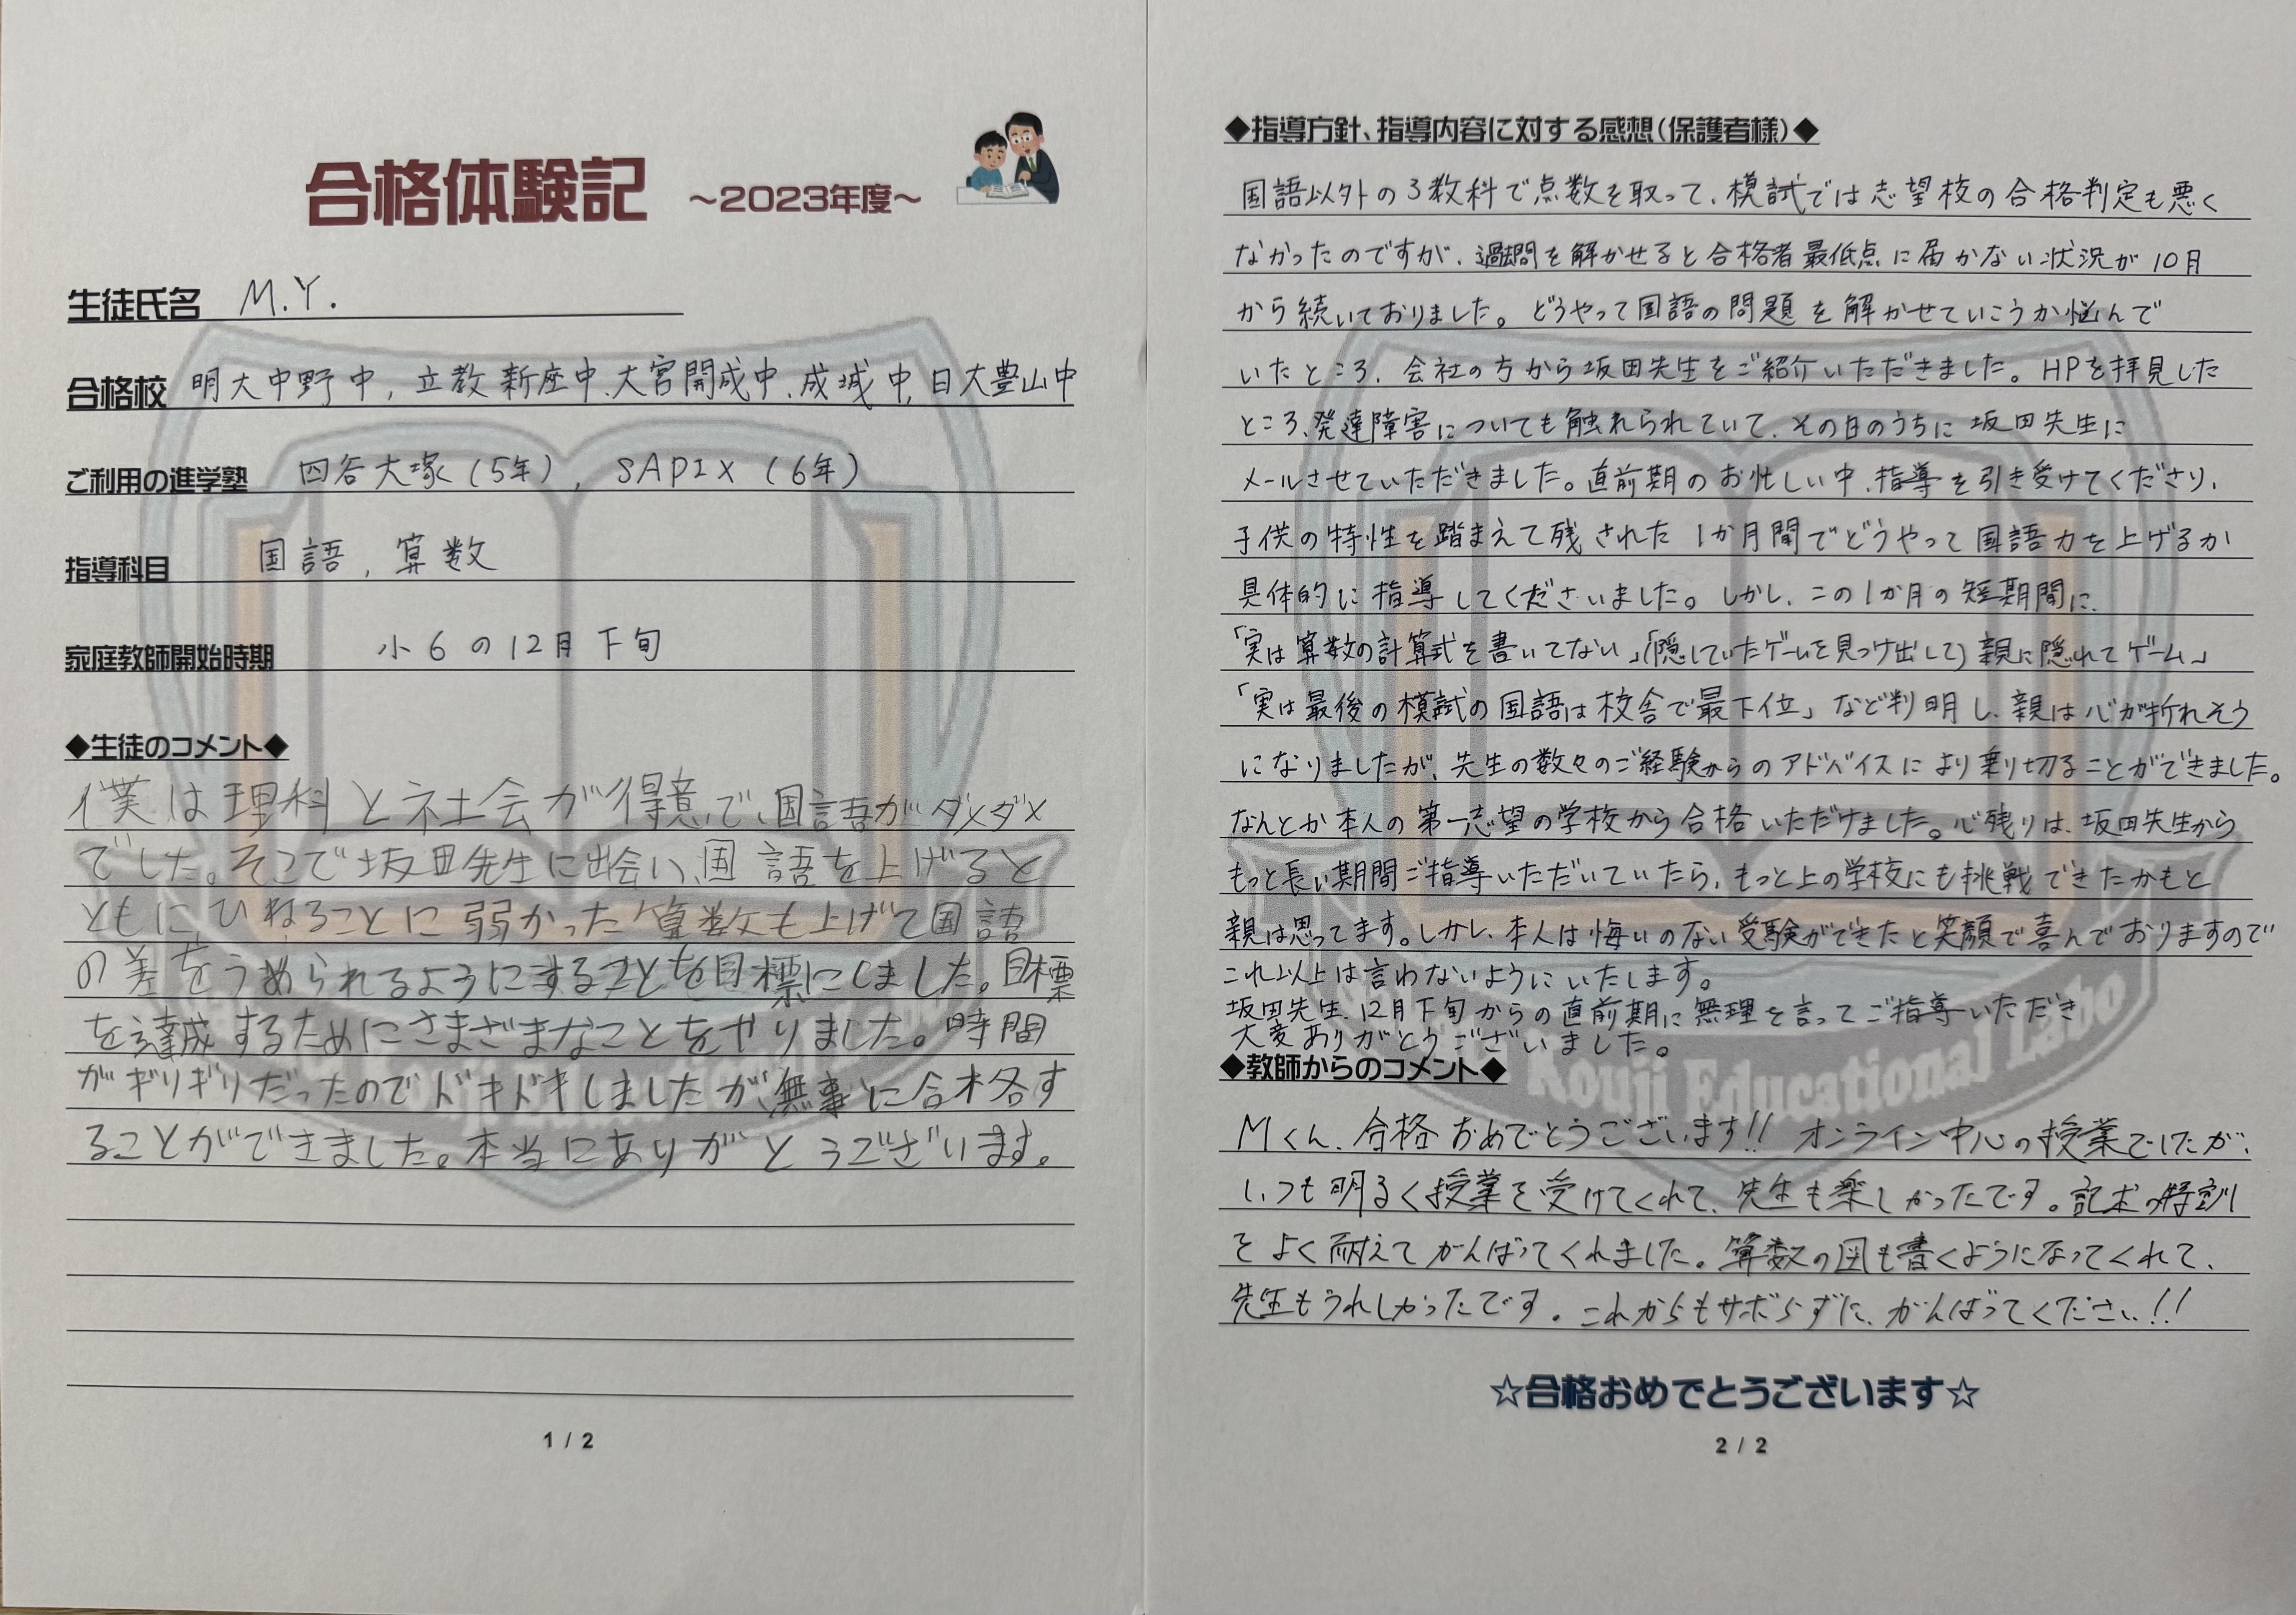 合格体験記 ～2023年度～
生徒氏名 M.Y.
合格校 明大中野中, 立教新座中、大宮開成中、成城中, 日大豊山中
ご利用の進学塾 四谷大塚(5年), SAPIX(6年)
指導科目 国語, 算数
家庭教師開始時期 小6の12月下旬
◆生徒のコメント◆
僕は理科と社会が得意で、国語がダメダメ
でした。そこで坂田先生に出会い、国語を上げると
ともにひねることに弱かった算数も上げて国語
の差をうめられるようにすることを目標にしました。目標
を達成するためにさまざまなことをやりました。時間
がギリギリだったのでドキドキしましたが、無事に合格す
ることができました。本当にありがとうございます。
1 / 2
◆指導方針、指導内容に対する感想(保護者様)◆
国語以外の3教科で点数を取って、模試では志望校の合格判定も悪く
なかったのですが、過去問を解かせると合格者最低点に届かない状況が10月
から続いておりました。どうやって国語の問題を解かせていこうか悩んで
いたところ、会社の方から坂田先生をご紹介いただきました。HPを拝見した
ところ、発達障害についても触れられていて、その日のうちに坂田先生に
メールさせていただきました。直前期のお忙しい中、指導を引き受けてくださり、
子供の特性を踏まえて残された1か月間でどうやって国語力を上げるか
具体的に指導してくださいました。しかし、この1か月の短期間に、
「実は算数の計算式を書いてない」「(隠していたゲームを見つけ出して)親に隠れてゲーム」
「実は最後の模試の国語は校舎で最下位」など判明し、親は心が折れそう
になりましたが、先生の数々のご経験からのアドバイスにより乗り切ることができました。
なんとか本人の第一志望の学校から合格いただけました。心残りは、坂田先生から
もっと長い期間ご指導いただいていたら、もっと上の学校にも挑戦できたかもと
親は思ってます。しかし、本人は悔いのない受験ができたと笑顔で喜んでおりますので
これ以上は言わないようにいたします。
坂田先生、12月下旬からの直前期に無理を言ってご指導いただき
大変ありがとうございました。
◆教師からのコメント◆
Mくん、合格おめでとうございます!! オンライン中心の授業でしたが、
いつも明るく授業を受けてくれて、先生も楽しかったです。記述の特訓
をよく耐えてがんばってくれました。算数の図も書くようになってくれて、
先生もうれしかったです。これからもサボらずに、がんばってください!!
☆合格おめでとうございます☆
2 / 2
Kouji Educational Labo